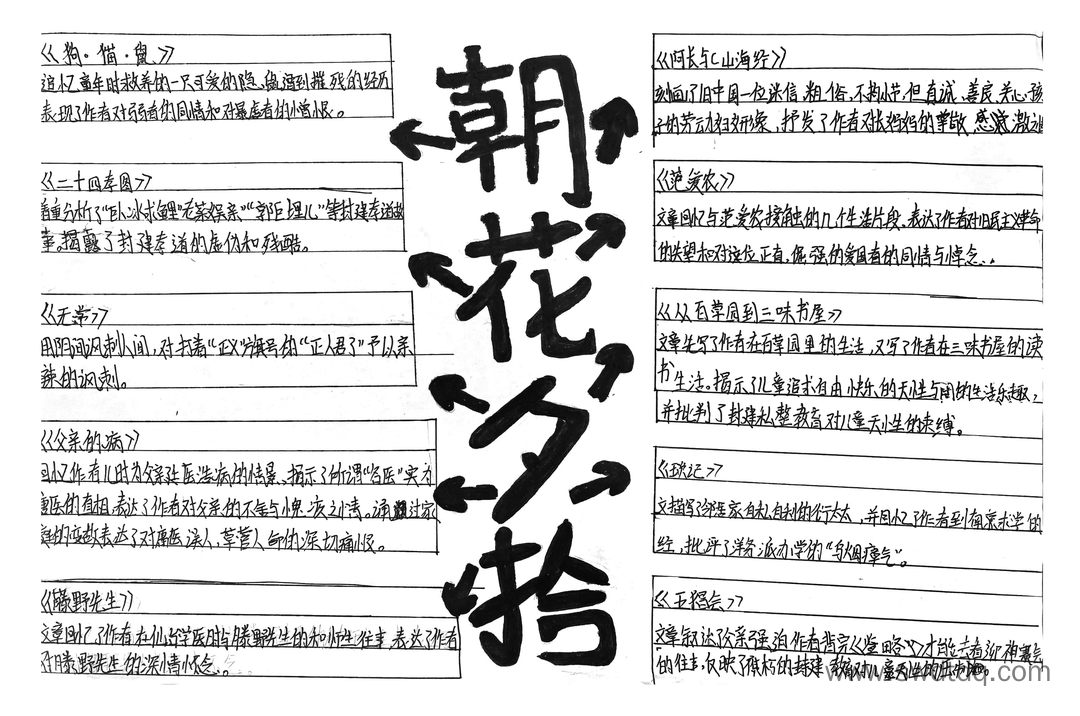 《狗·猫·鼠》
追忆童年时救养的一只可爱的隐鼠遭到摧残的经历
表现了作者对弱者的同情和对暴虐者的憎恨。
《二十四孝图》
着重分析了“卧冰求鲤”“老莱娱亲”“郭巨埋儿”等封建孝道故
事,揭露了封建孝道的虚伪和残酷。
《无常》
用阴间讽刺人间,对书者“正义”旗号的“正人君子”予以亲
辣的讽刺。
《父亲的病》
回忆作者儿时为父亲延医治病的情景、揭示了所谓“名医”实为
庸医的真相,表达了作者对父亲的不舍与之情。通过家
庭的变故表达了对庸医误人,草菅人命的深切痛恨。
《藤野先生》
文章回忆了作者在仙台学医时与藤野先生的和师生往事,表达了作者
对藤野先生的深情怀念。
朝花夕拾
《阿长与《山海经》
刻画了旧中国一位迷信、粗俗,不拘小节,但真诚、善良、关心孩
子的劳动妇女形象,抒发了作者对长妈妈的尊敬、感激之
《范爱农》
文章回忆与范爱农接触的几个生活片段、表达了作者对旧民主义革命
的失望和对这位正直,倔强的爱国者的同情与悼念。
《从百草园到三味书屋》
文章先写了作者在百草园里的生活,又写了作者在三味书屋的读
书生活。揭示了儿童追求自由快乐的天性与用的生活乐趣,
并批判了封建私塾教育对儿童天性的束缚。
《琐记》
文描写了邻居家自私自利的行太太,并回忆了作者到南京求学的
经,批评了洋务派办学的“乌烟瘴气”。
《五猖会》
文章叙述父亲强迫作者背完《鉴略》才能去看迎神赛会
的往事,反映了的封建教育对儿童天性的压制。
www.swtdq.com